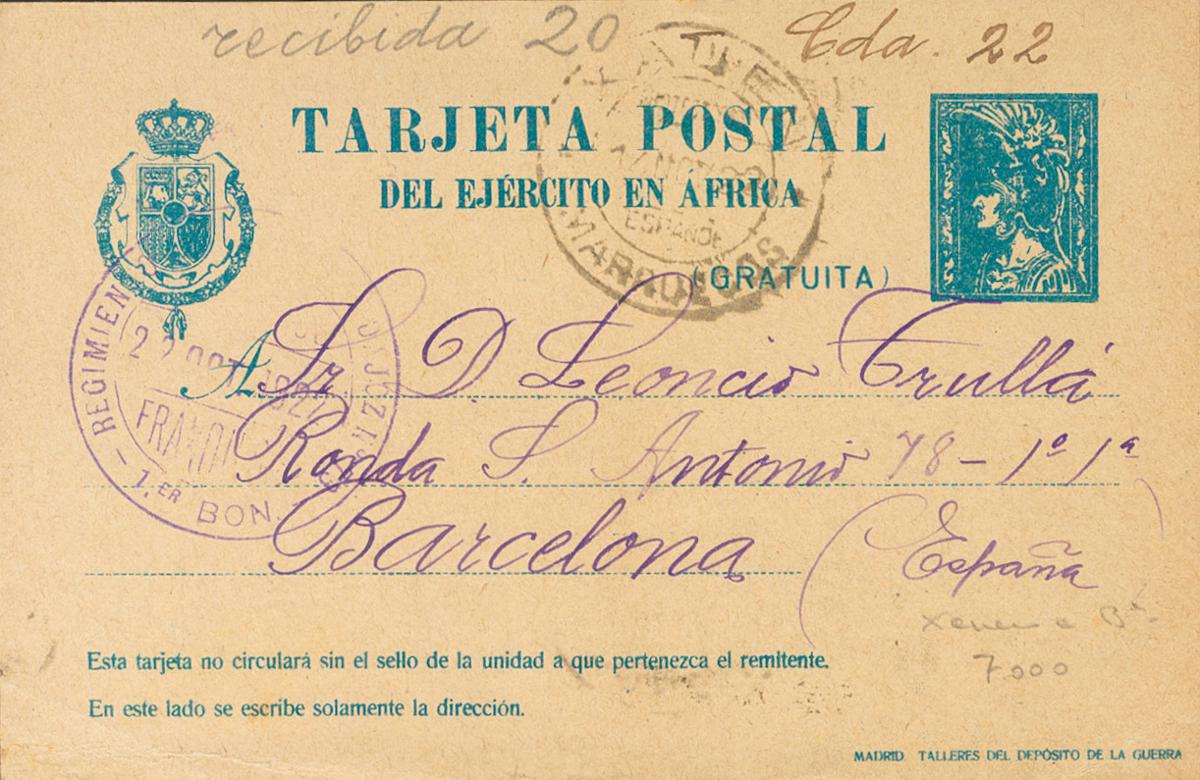 recibida 20 Cda. 22
TARJETA POSTAL
DEL EJÉRCITO EN ÁFRICA
(GRATUITA)
MARRUECOS
ESPAÑOL
REGIMIEN
22 OCT 192
1.ER BON.
A Sr D. Leoncio Trullá
Ronda S. Antonio 78 - 1º 1ª
Barcelona (España)
7000
Esta tarjeta no circulará sin el sello de la unidad a que pertenezca el remitente.
En este lado se escribe solamente la dirección.
MADRID. TALLERES DEL DEPÓSITO DE LA GUERRA